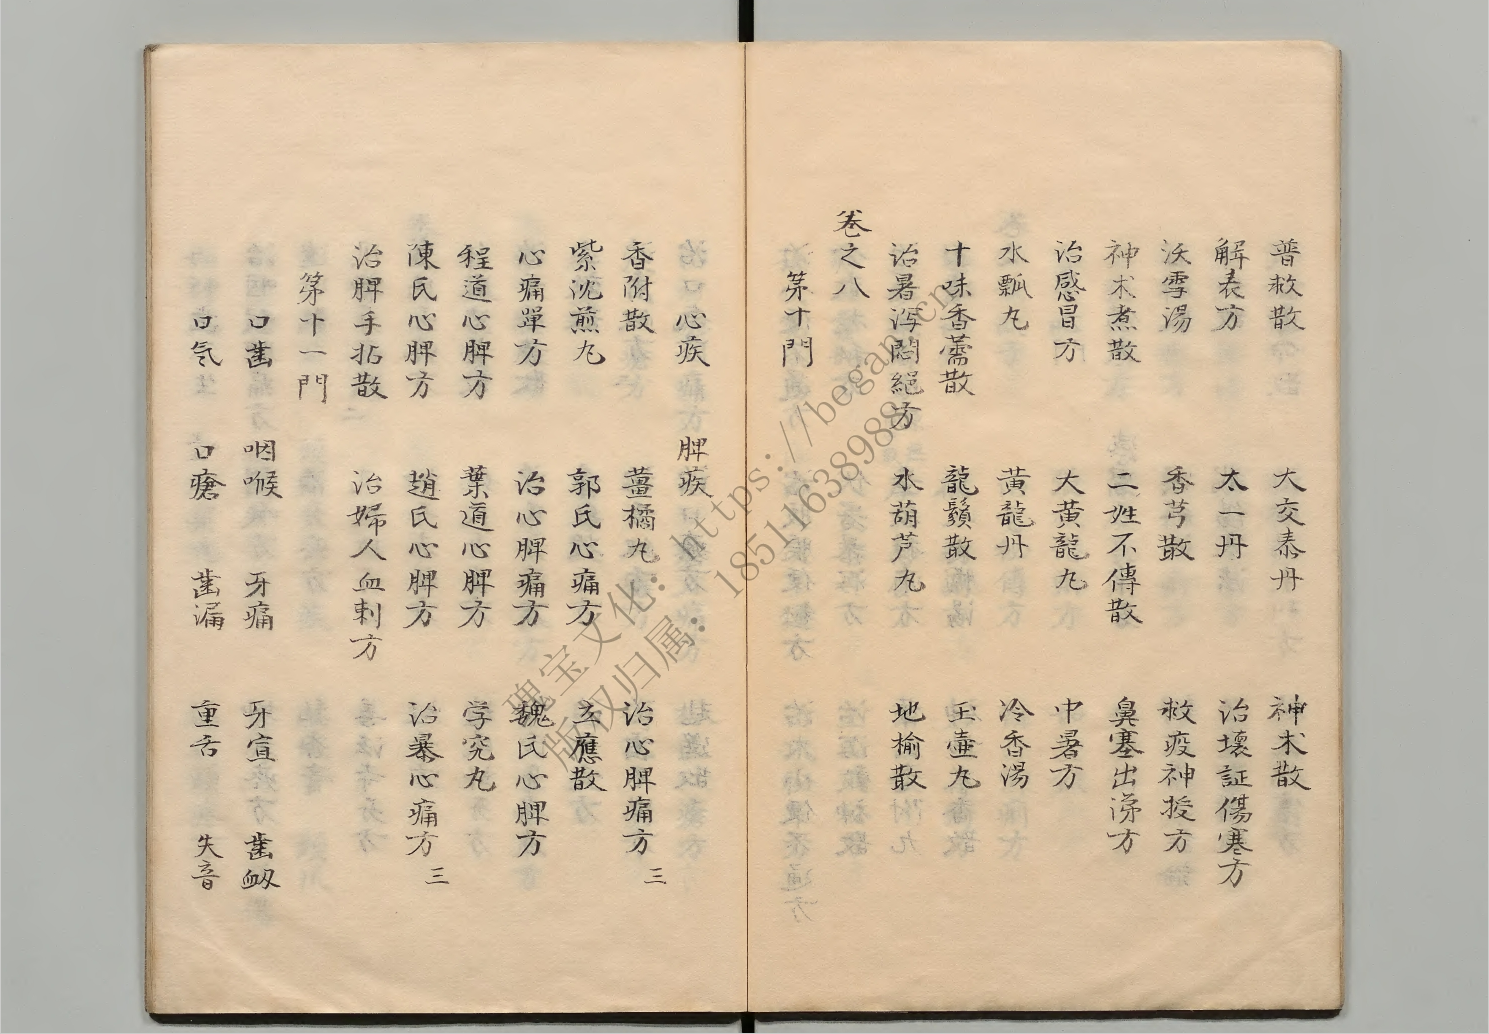 普救散　大交泰丹　神朮散
解表方　太一丹　治壊証傷寒方
沃雪湯　香芎散　救疫神授方
神朮煮散　二姓不傳散　鼻塞出涕方
治感冒方　大黄龍丸　中暑方
水瓢丸　黄龍丹　冷香湯
十味香薷散　龍鬚散　玉壷丸
治暑泻悶絕方　水葫芦丸　地榆散
卷之八
第十門
心疾　脾疾
香附散　薑橘丸　治心脾痛方 三
紫沈煎丸　郭氏心痛方　玄應散
心痛單方　治心脾痛方　魏氏心脾方
程道心脾方　葉道心脾方　学究丸
陳氏心脾方　趙氏心脾方　治暴心痛方 三
治脾手拈散　治婦人血刺方
第十一門
口齒　咽喉　牙痛　牙宣　齒衂
口気　口瘡　齒漏　重舌　失音
瑰宝文化：https://began.cn
版权归属：18511638988